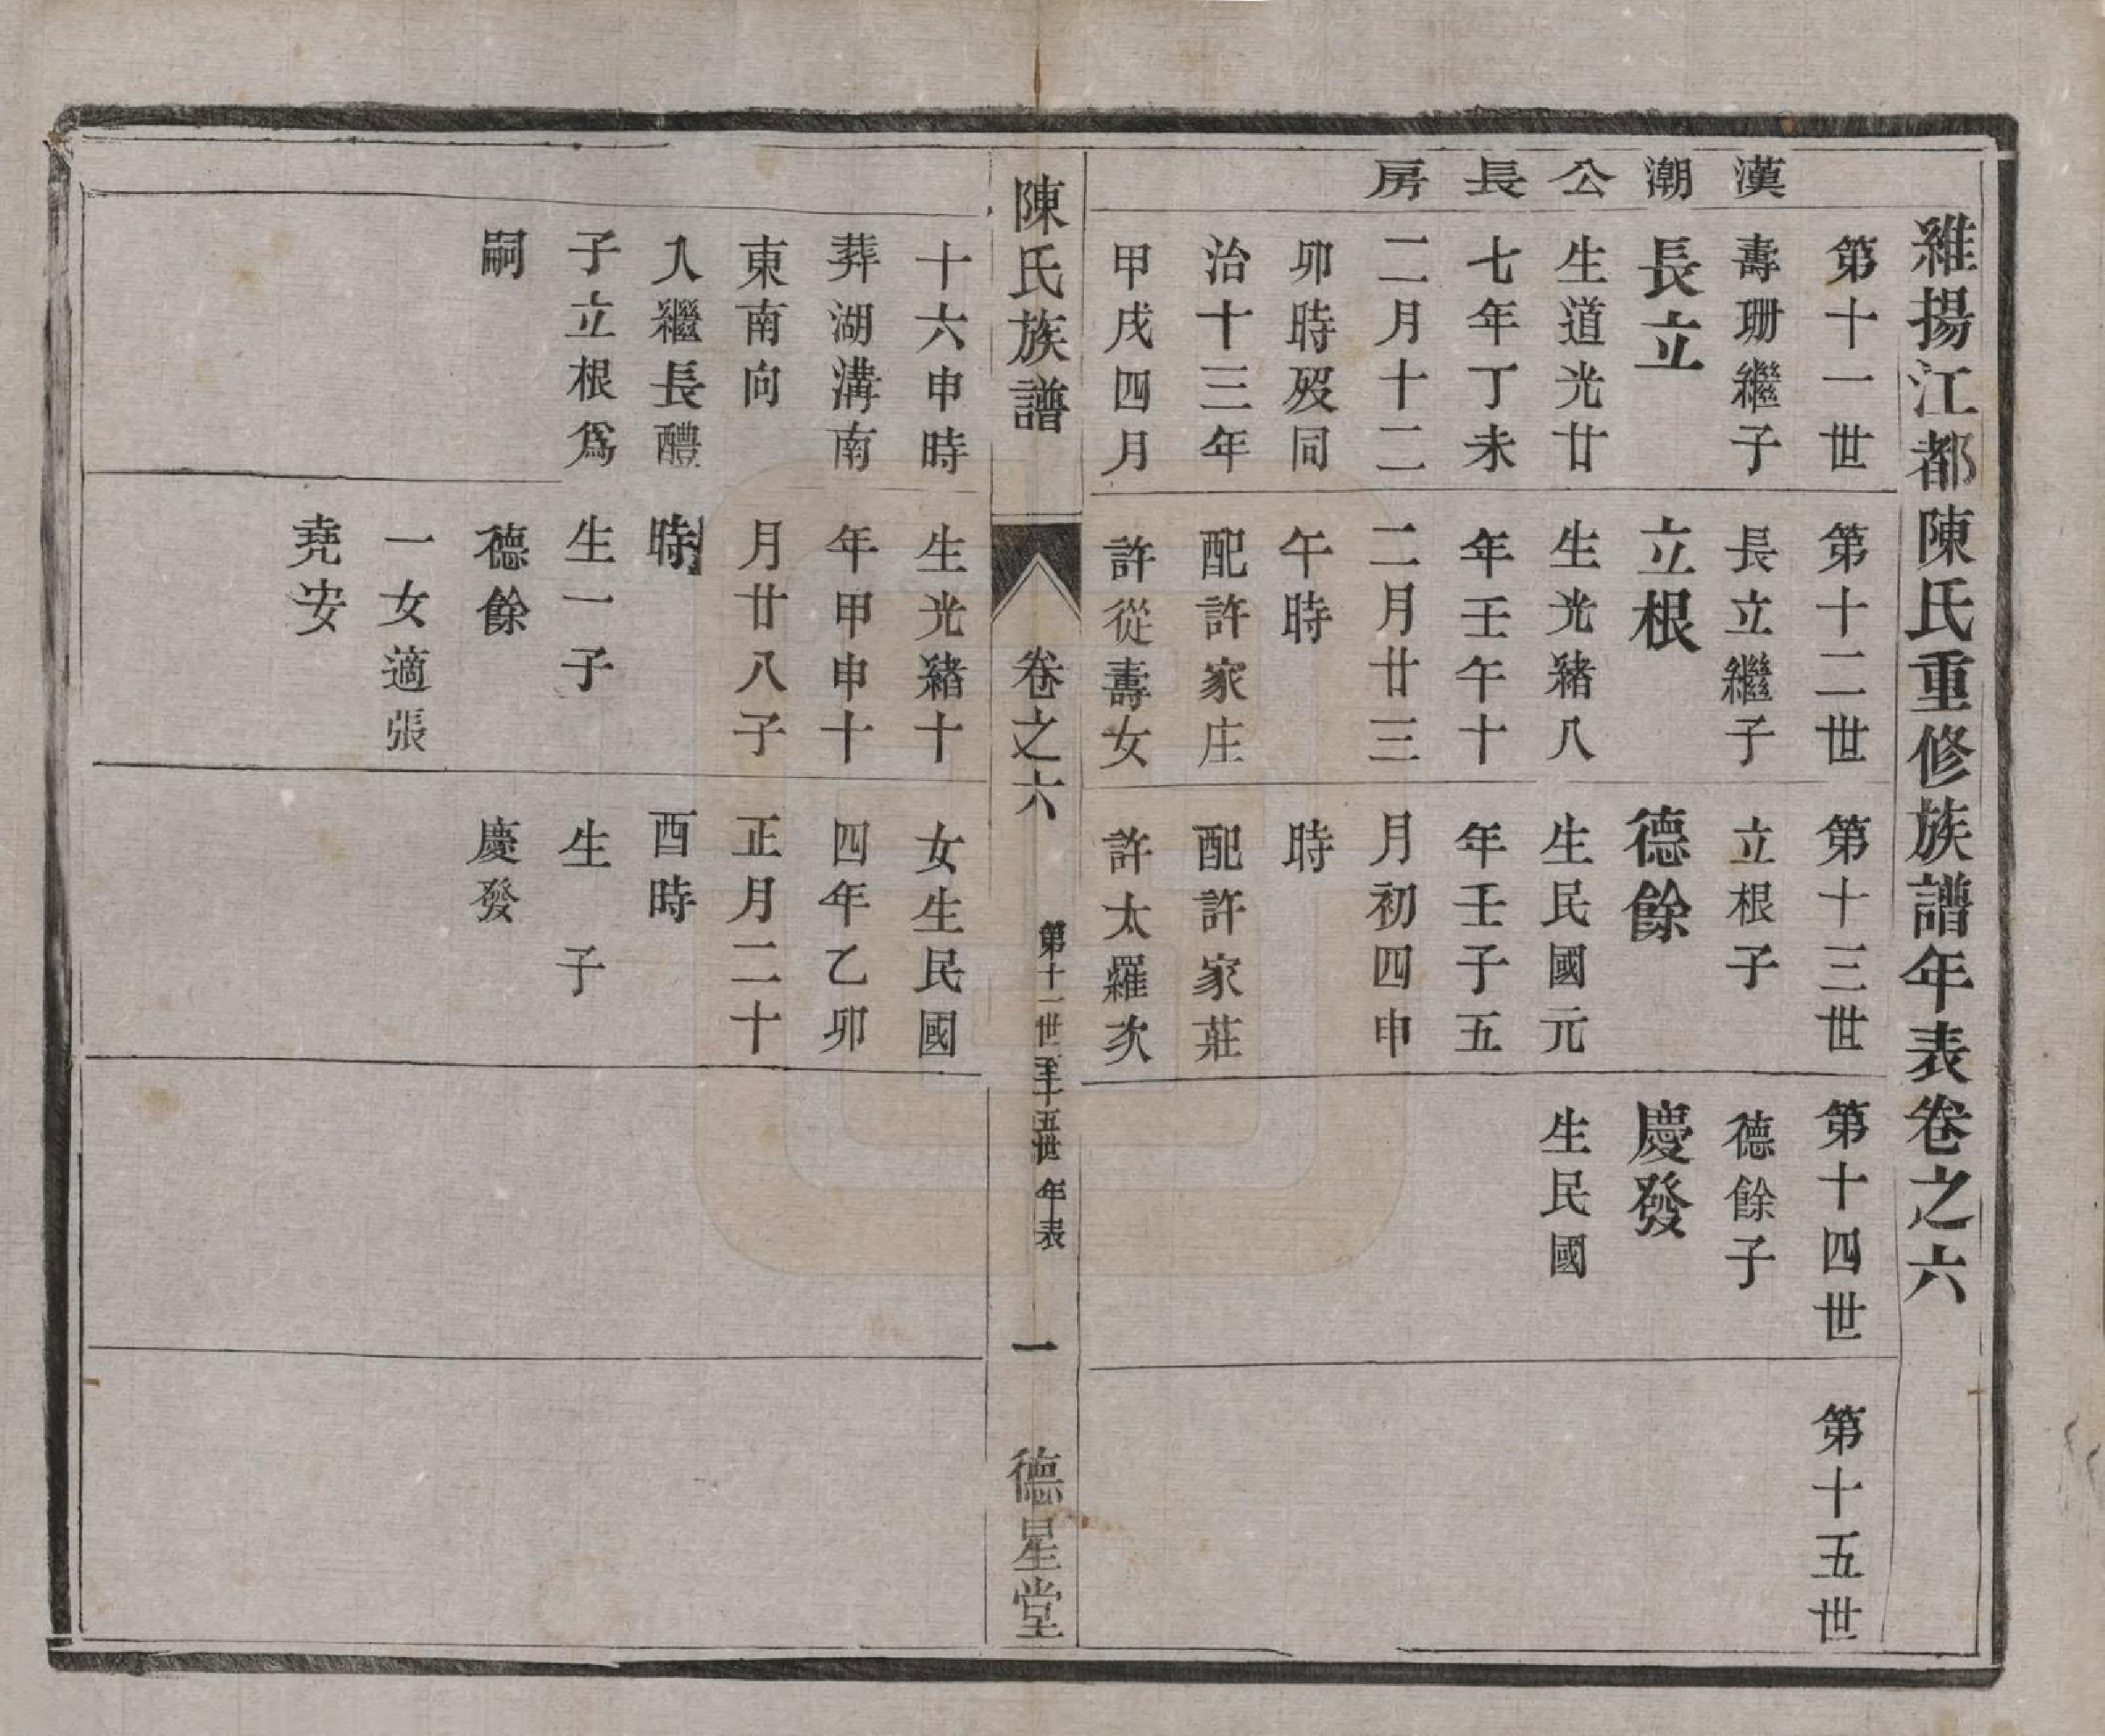 維揚江都陳氏重修族譜年表卷之六
漢潮公長房
第十一世
壽珊繼子
長立
生道光廿
七年丁未
二月十二
卯時歿同
治十三年
甲戌四月
十六申時
葬湖溝南
東南向
人繼長醴
子立根爲
嗣
第十二世
長立繼子
立根
生光緒八
年壬午十
二月廿三
午時
配許家庄
許從壽女
生光緒十
年甲申十
月廿八子
時
生一子
德餘
一女適張
堯安
第十三世
立根子
德餘
生民國元
年壬子五
月初四申
時
配許家莊
許太羅次
女生民國
四年乙卯
正月二十
酉時
生　子
慶發
第十四世
德餘子
慶發
生民國
第十五世
陳氏族譜
卷之六
第十一世至十五世年表
一
德星堂